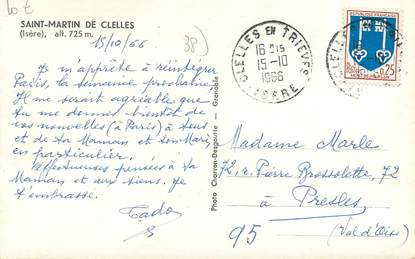 10 €
SAINT-MARTIN DE CLELLES
(Isère), alt. 725 m.
15/10/66
38)
Je m'apprête à réintégrer
Paris, la semaine prochaine
Il me serait agréable que
tu me donnes bientôt de
vos nouvelles (à Paris) à tous
et de ta Maman et son Mari
en particulier.
Affectueuses pensées à ta
Maman et aux tiens. Je
t'embrasse.
Tado
Photo Charron-Desgoutte - Grenoble
CLELLES EN TRIEVES
16H15
15-10
1966
ISERE
REPUBLIQUE FRANÇAISE
0,25
MONT-DE-MARSAN
Madame Marle
72, r. Pierre Brossolette, 72
à Presles
95 (Val d'Oise)